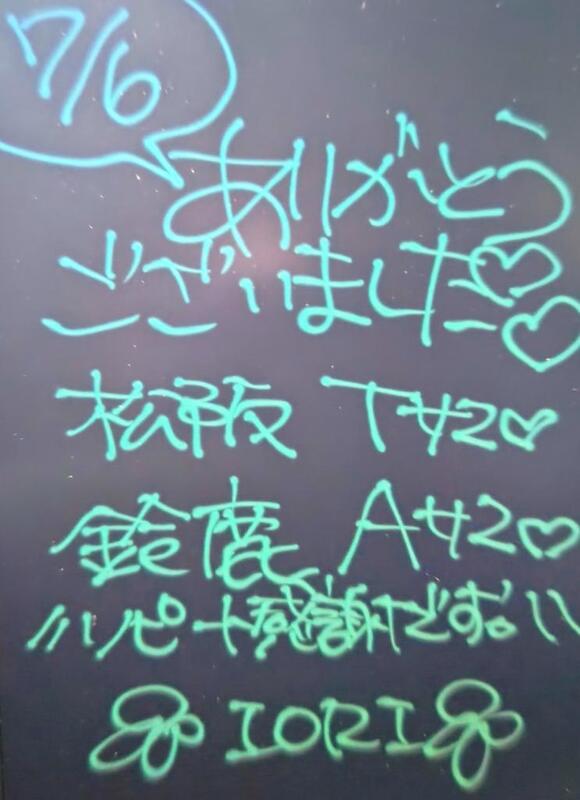 7/6
ありがとう
ございました♡♡
松阪 Tサン♡
鈴鹿 Aサン♡
リピート感謝です。
IORI